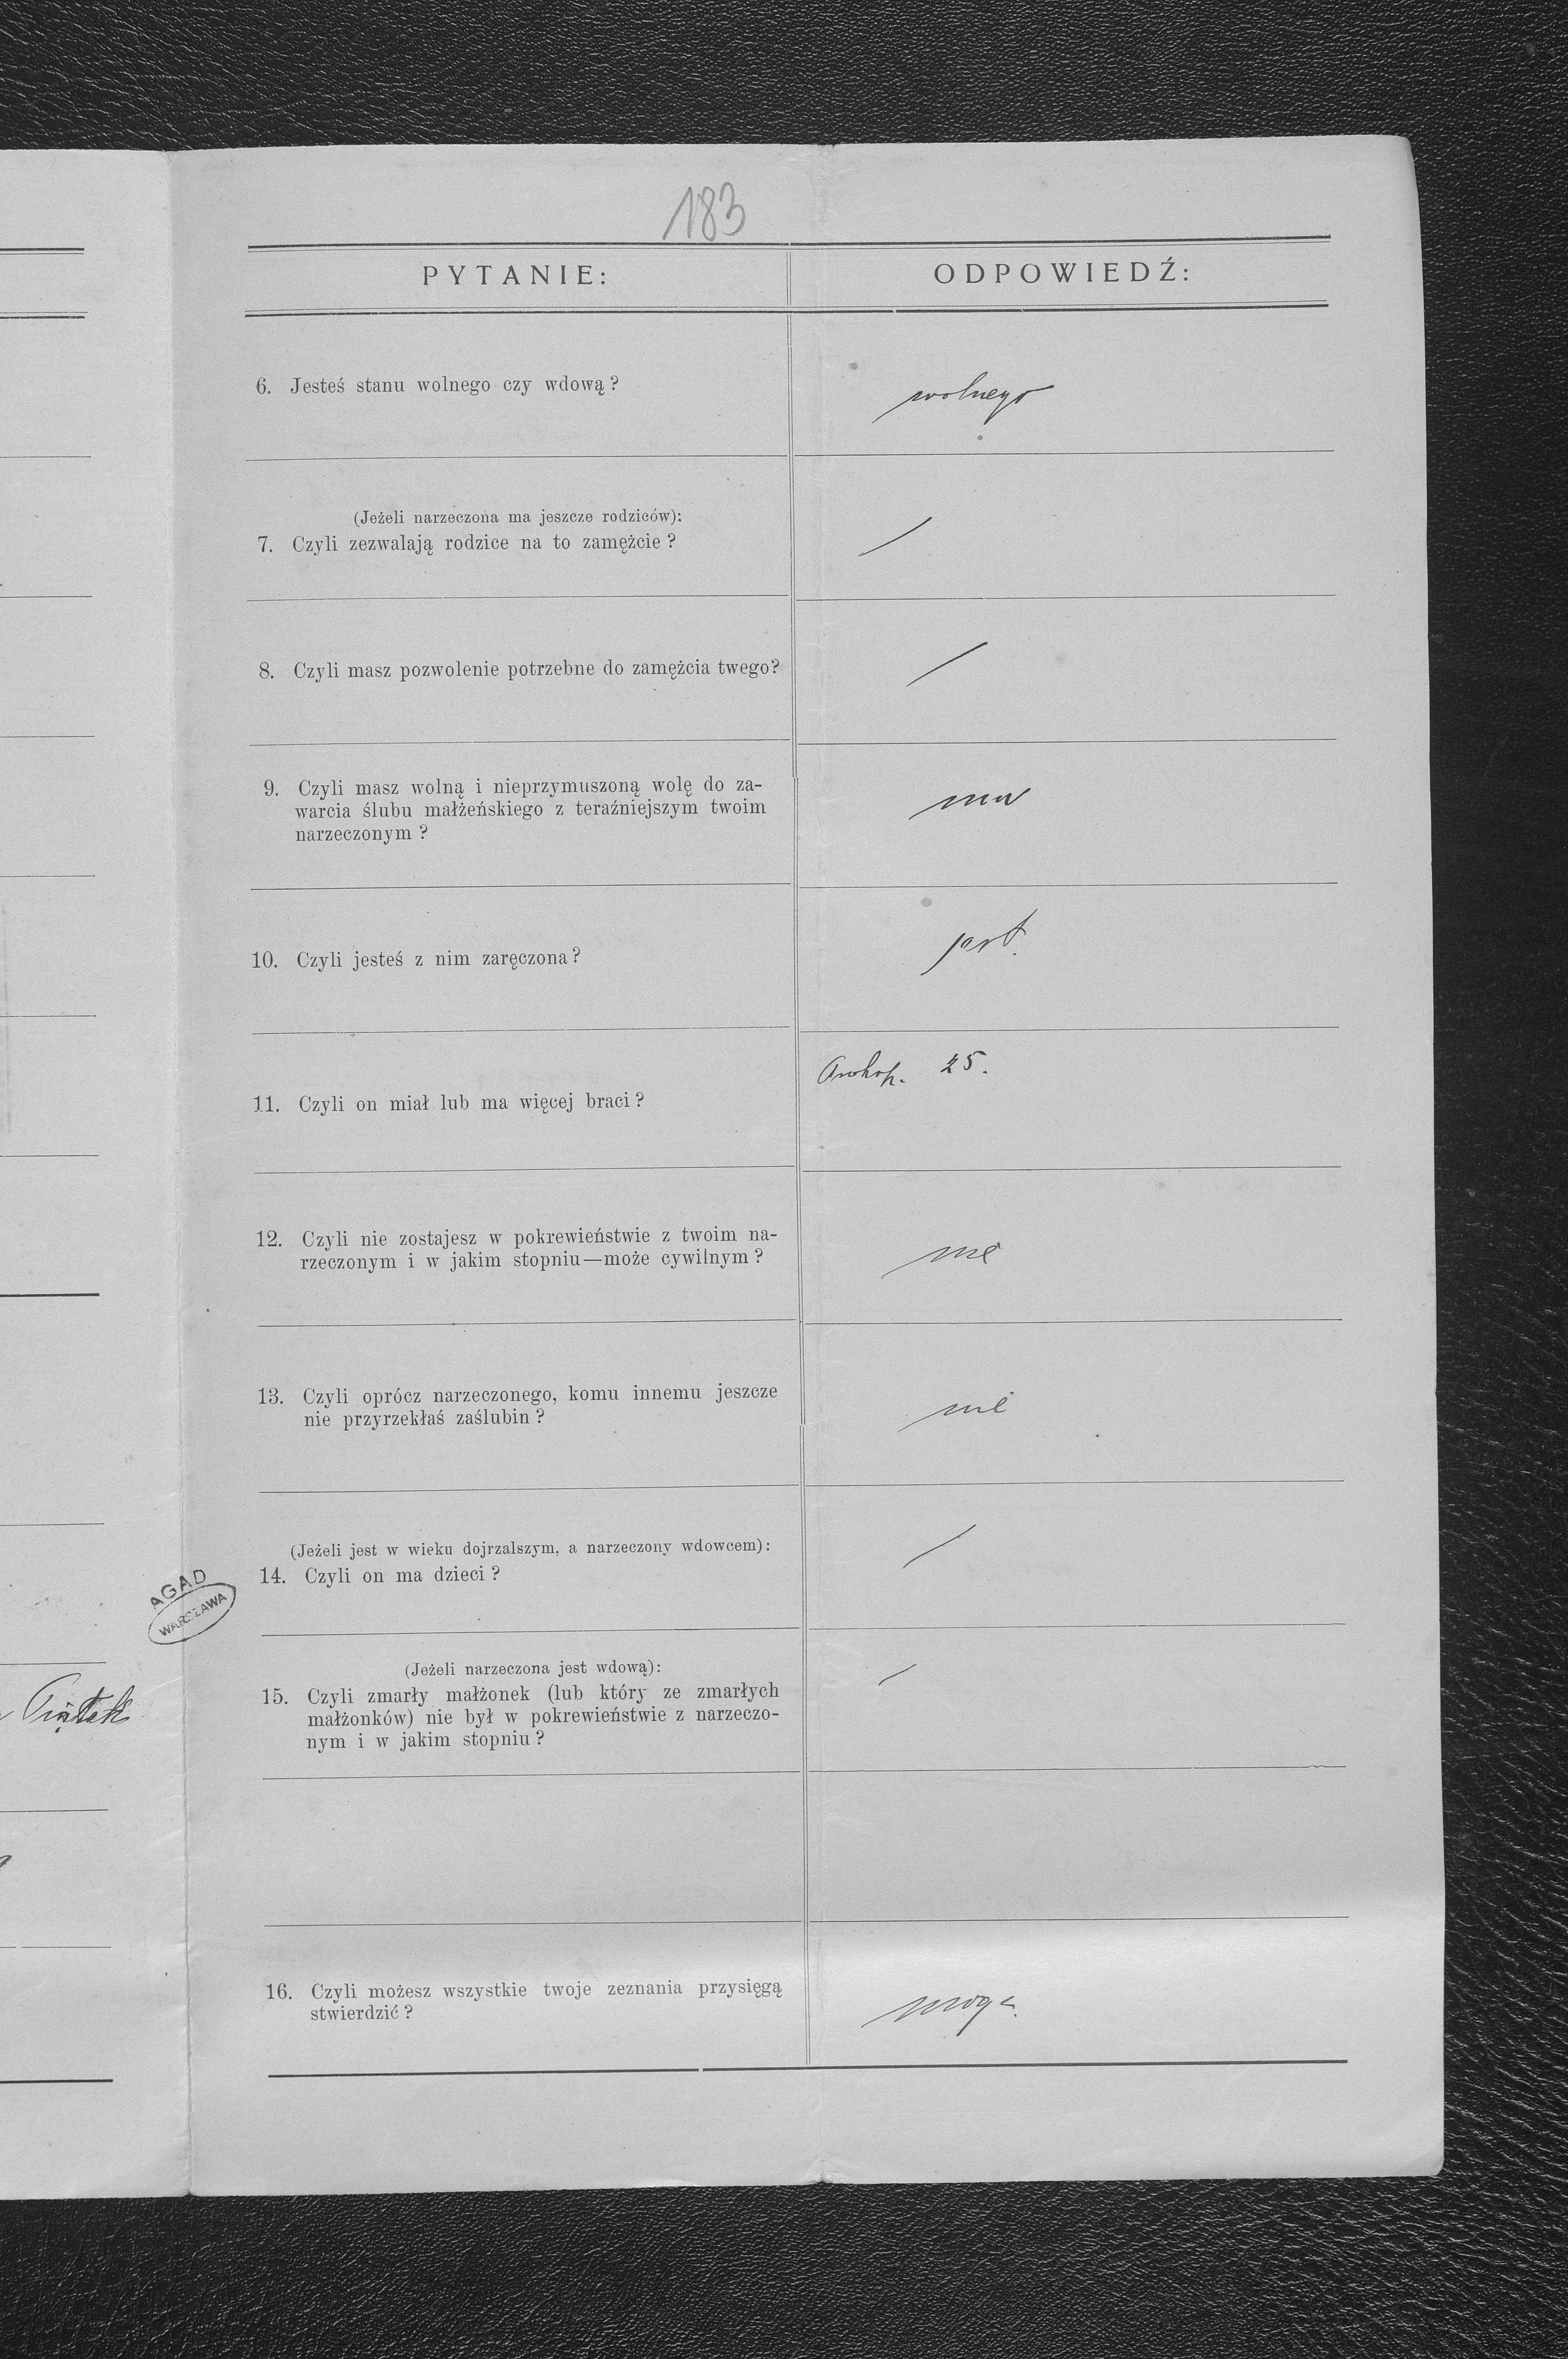 183
PYTANIE:
ODPOWIEDŹ:
6. Jesteś stanu wolnego czy wdową?
wolnego
(Jeżeli narzeczona ma jeszcze rodziców):
7. Czyli zezwalają rodzice na to zamężcie?
/
8. Czyli masz pozwolenie potrzebne do zamężcia twego?
/
9. Czyli masz wolną i nieprzymuszoną wolę do za-
warcia ślubu małżeńskiego z teraźniejszym twoim
narzeczonym?
ma
10. Czyli jesteś z nim zaręczona?
jest.
11. Czyli on miał lub ma więcej braci?
Prokop. 25.
12. Czyli nie zostajesz w pokrewieństwie z twoim na-
rzeczonym i w jakim stopniu—może cywilnym?
nie
13. Czyli oprócz narzeczonego, komu innemu jeszcze
nie przyrzekłaś zaślubin?
nie
(Jeżeli jest w wieku dojrzalszym, a narzeczony wdowcem):
14. Czyli on ma dzieci?
/
(Jeżeli narzeczona jest wdową):
15. Czyli zmarły małżonek (lub który ze zmarłych
małżonków) nie był w pokrewieństwie z narzeczo-
nym i w jakim stopniu?
/
16. Czyli możesz wszystkie twoje zeznania przysięgą
stwierdzić?
mogę.
AGAD
WARSZAWA
Piątek